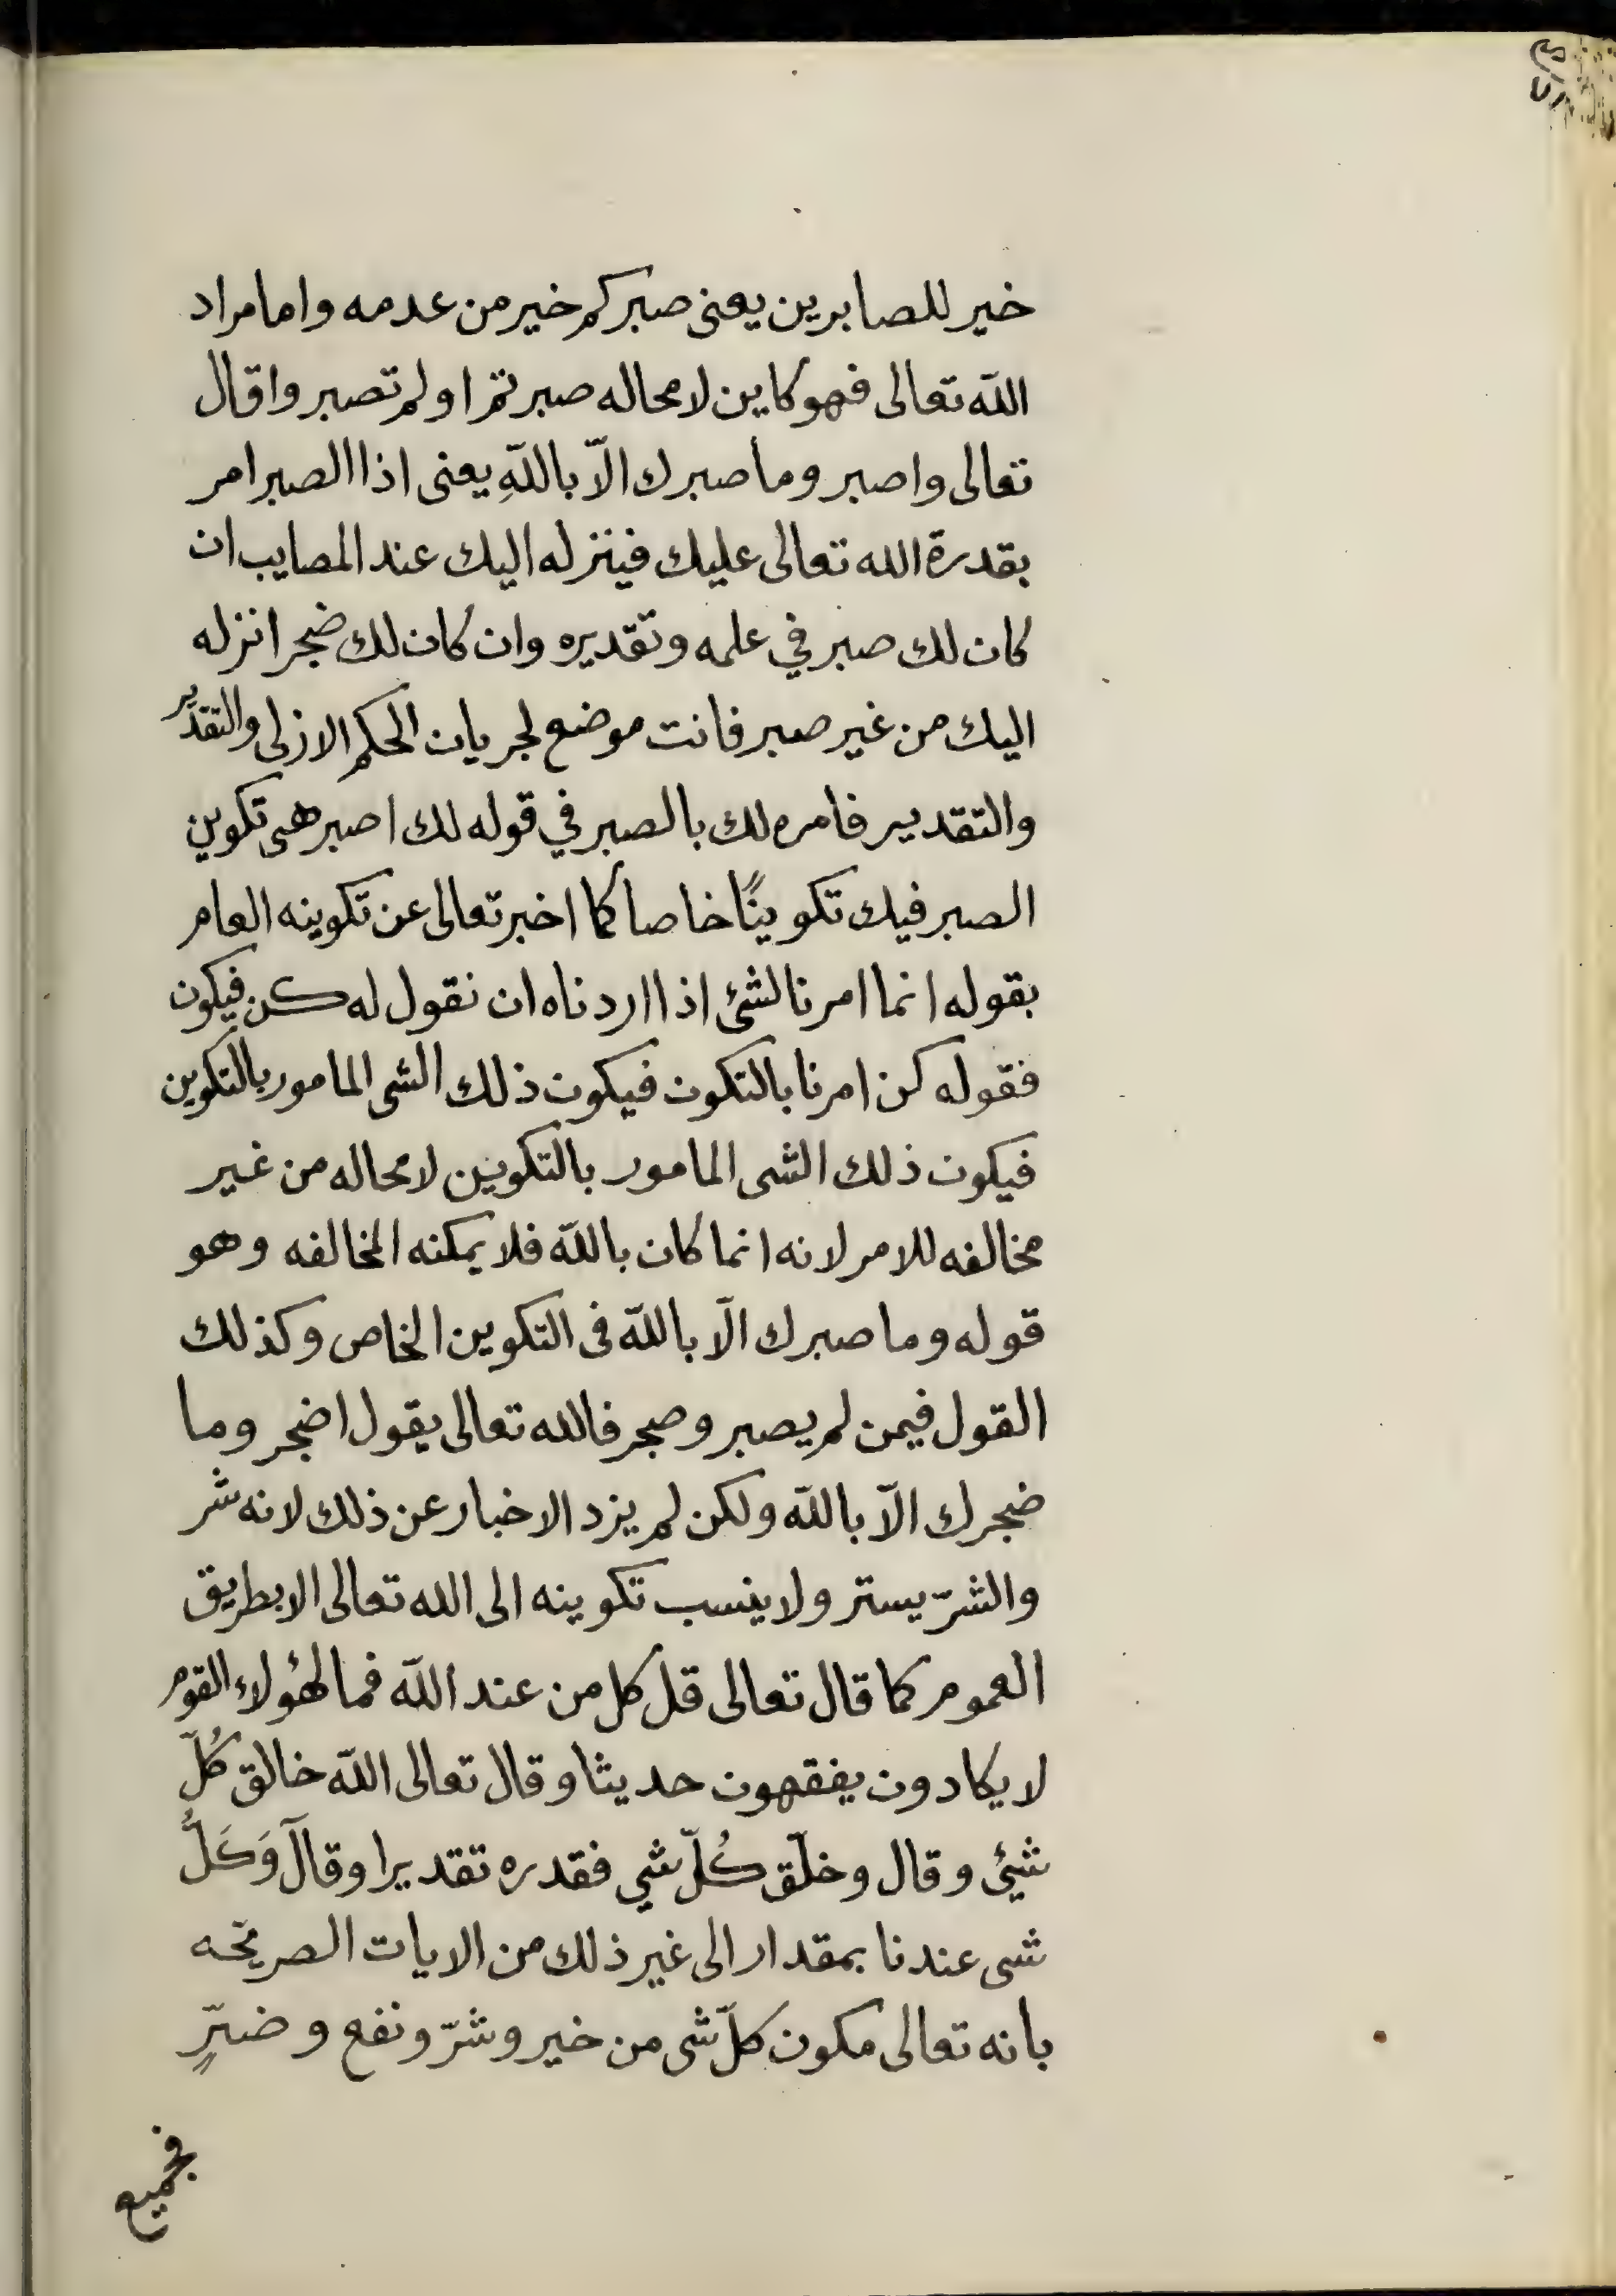 خير للصابرين يعنى صبركم خير من عدمه واما مراد
الله تعالى فهو كاين لا محاله صبرتم او لم تصبروا قال
تعالى واصبر وما صبرك الّا باللّهِ يعنى اذا الصبر امر
بقدرة الله تعالى عليك فينزله اليك عند المصايب ان
كان لك صبر في علمه وتقديره وان كان لك ضجر انزله
اليك من غير صبر فانت موضع لجريان الحكم الازلى والتقدير
والتقدير فامره لك بالصبر في قوله لك اصبر هى تكوين
الصبر فيك تكوينًا خاصا كما اخبر تعالى عن تكوينه العام
بقوله انما امرنا لشئ اذا اردناه ان نقول له كن فيكون
فقوله كن امرنا بالتكون فيكون ذلك الشى المامور بالتكوين
فيكون ذلك الشى المامور بالتكوين لا محاله من غير
مخالفه للامر لانه انما كان باللّه فلا يمكنه المخالفه وهو
قوله وما صبرك الّا باللّه فى التكوين الخاص وكذلك
القول فيمن لم يصبر وضجر فالله تعالى يقول اضجر وما
ضجرك الّا باللّه ولكن لم يزد الاخبار عن ذلك لانه شر
والشرّ يستر ولا ينسب تكوينه الى الله تعالى الا بطريق
العموم كما قال تعالى قل كل من عند اللّه فما لهؤلاء القوم
لا يكادون يفقهون حديثا وقال تعالى اللّه خالق كُلّ
شيئ وقال وخلَق كُلّ شي فقدره تقديرا وقال وَكَلُّ
شى عندنا بمقدار الى غير ذلك من الايات الصريحه
بانه تعالى مكون كلّ شى من خير وشرّ ونفع وضرٍّ
فجميع